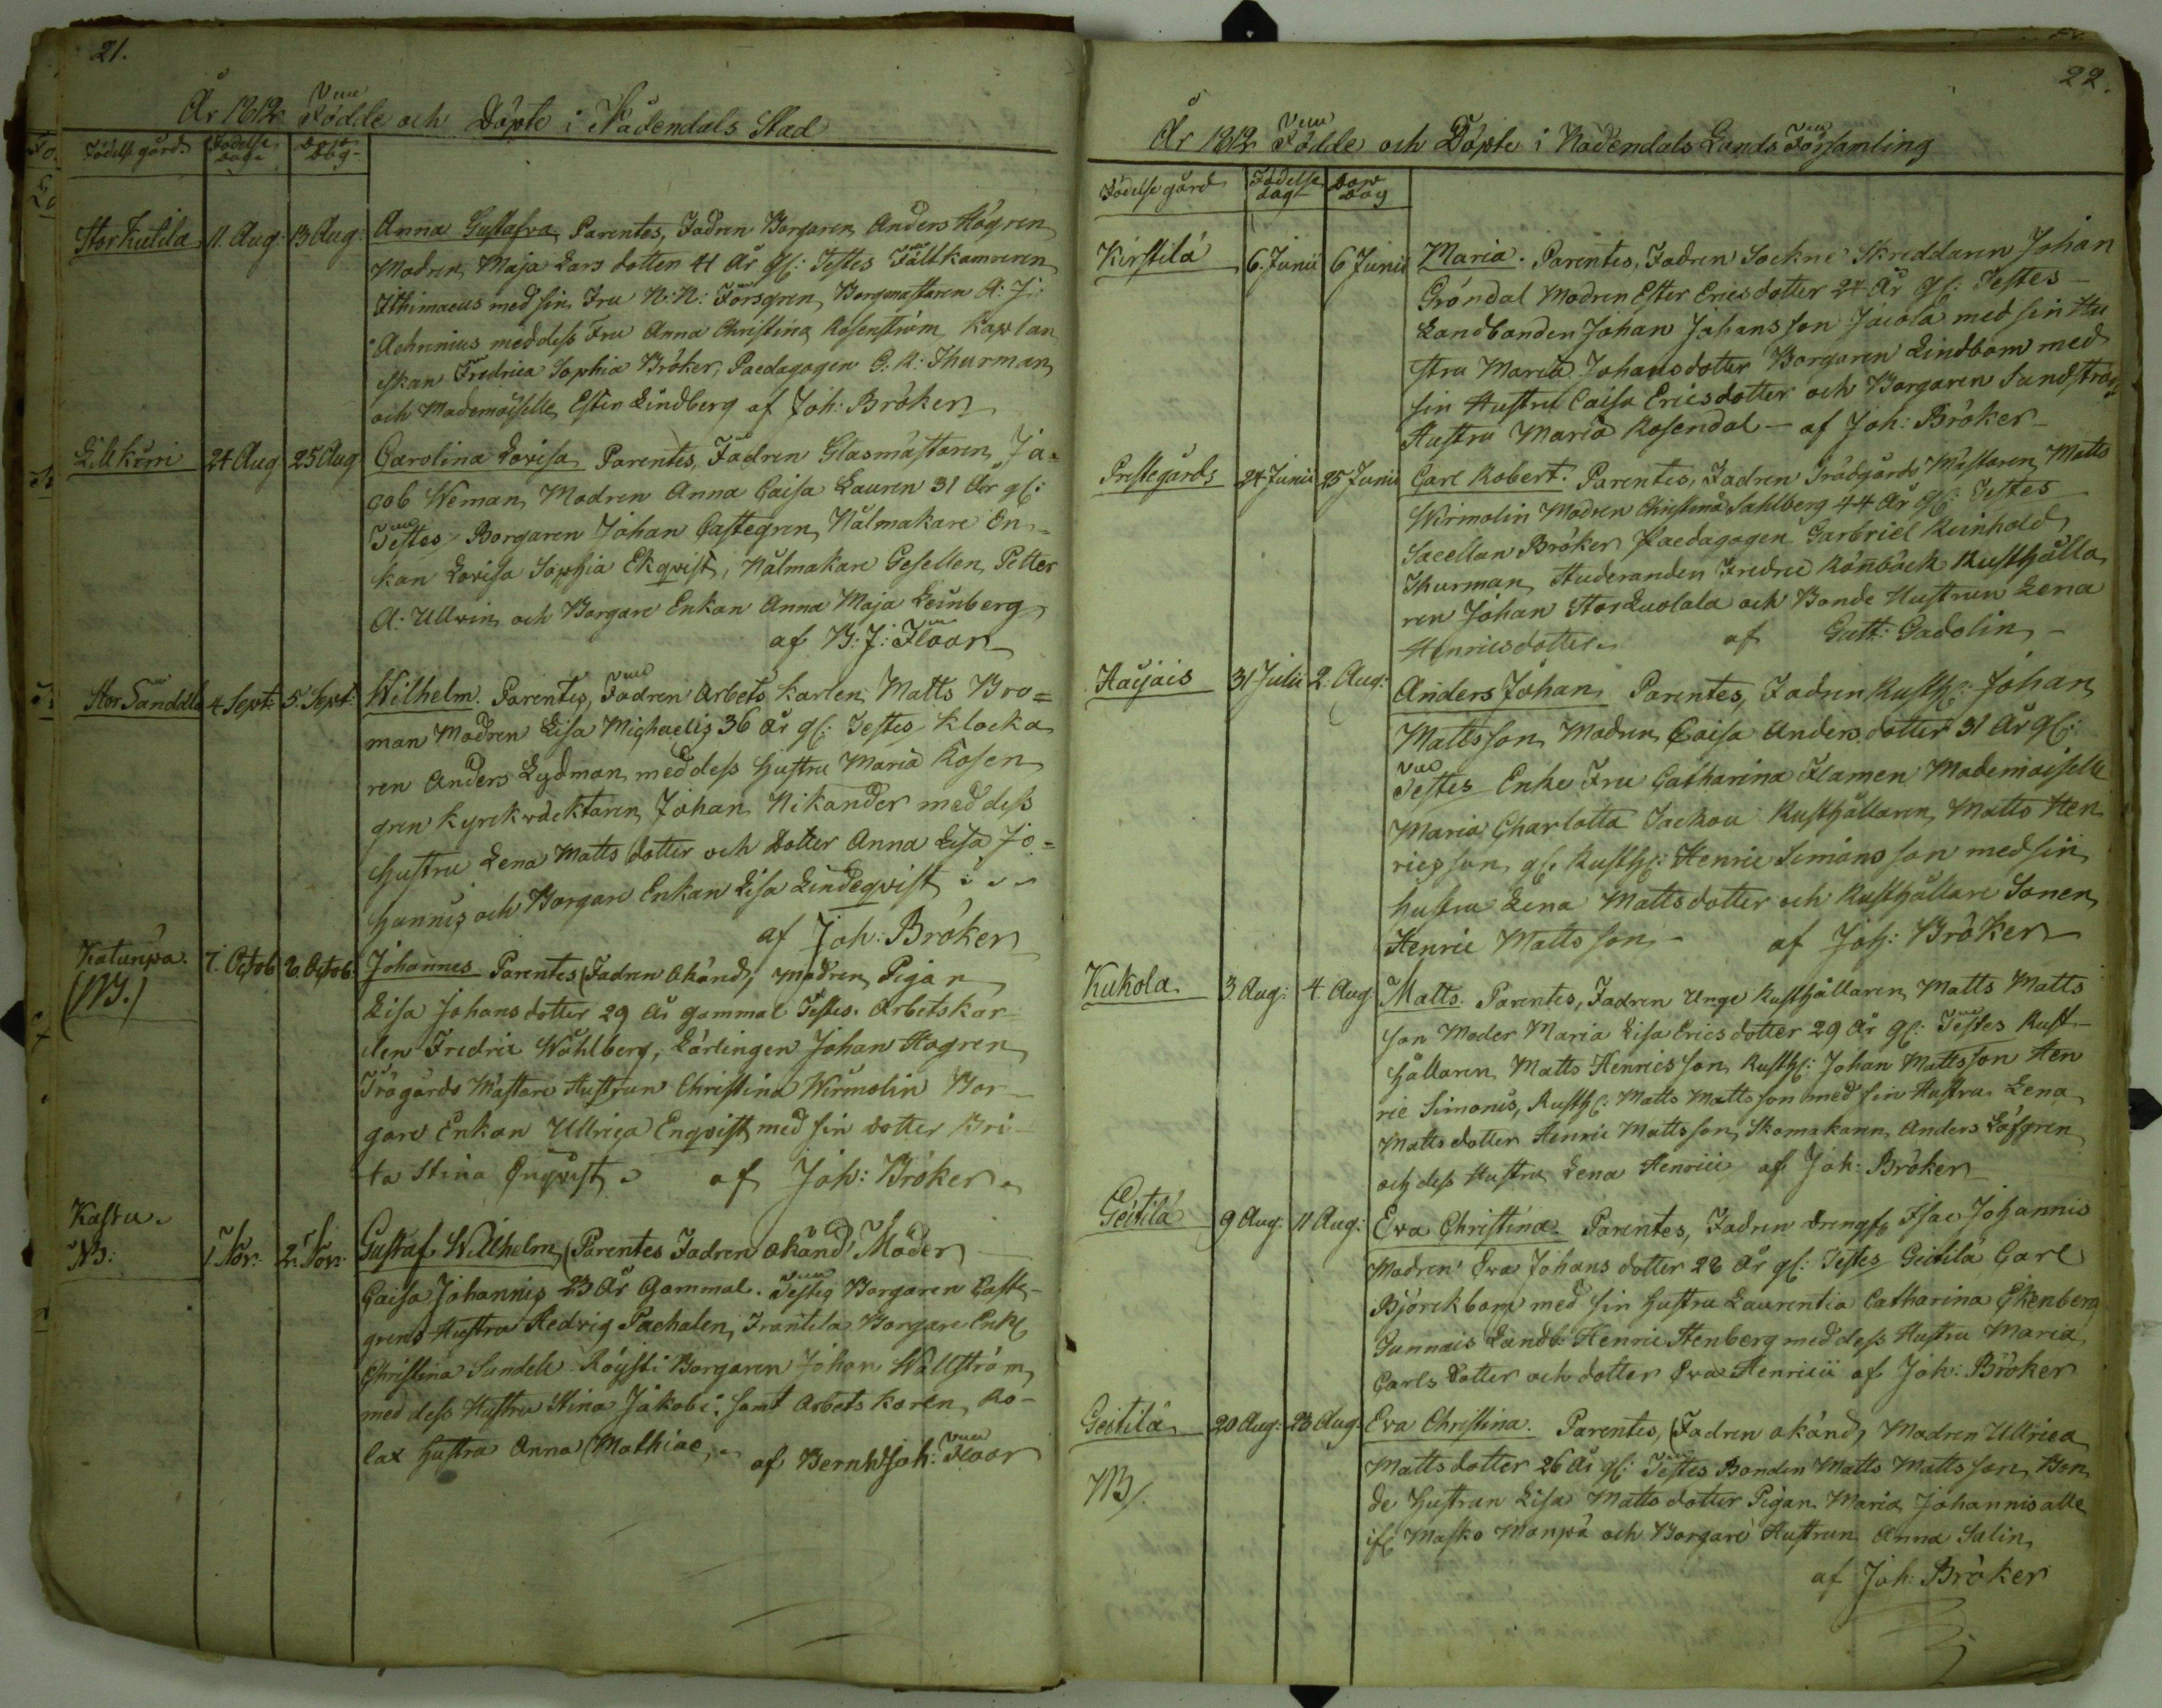 21.
År 1812 Födde och Döpte i Nådendals Stad
Födelse gård Födelse dag Döpe Dag
Stor Kulila 11. Aug: 13 Aug: Anna Gustafva, Parentes, Fadren Borgaren Anders Högren
Modren Maja Lars dotter 41 År gl: Testes Fältkamreren
Ithimaeus med sin Fru N: N: Forsgren, Borgmästaren A: J:
Achrenius med dess Fru Anna Christina Rosenström Kaplan
skan Fredrica Sophia Bröker, Paedagogen G. R: Thurman
och Mademoiselle Ester Lindberg af Joh: Bröker
24 Aug 25 Aug Carolina Lovisa Parentes, Fadren Glasmästaren Ja=
cob Weman, Modren Anna Caisa Lauren 31 År gl:
Testes Borgaren Johan Castegren, Nålmakare En
kan Lovisa Sophia Ekqvist, Nålmakare Gesellen Petter
A: Ullvin och Borgare Enkan Anna Maja Leinberg
af B: J: Floor
Stor Sandala 4 Sept: 5. Sept: Wilhelm. Parentes, Fadren Arbets karlen Matts Bro=
man Modren Lisa Michaelis 36 År gl: Testes Klocka
ren Anders Lydman, med dess hustru Maria Rosen
gren Kyrckväcktaren Johan Nikander med dess
hustru Lena Matts dotter och dotter Anna Lisa Jo=
hannis och Borgare Enkan Lisa Lindeqvist
af Joh: Bröker
Katunpä. 7. Octob 2. Octob: Johannes Parentes (Fadren okänd, modren Pigan
(NB.) Lisa Johans dotter 29 År gammal Testes. Arbetskar
len Fredric Wåhlberg, Lärlingen Johan Hagren
Trägårds Mästare Hustrun Christina Wirmolin Bor
gare Enkan Ullrica Enqvist med sin dotter Bri
ta Stina Enqvist af Joh: Bröker
Kastu. 1. Nov: 2. Nov: Gustaf Willhelm, (Parentes Fadren okänd Moder
NB: Caisa Johannis 23 År Gammal. Testes Borgaren Caste-
grens Hustru Hedvig Pachalen, Frantila Borgare Enk
Christina Sundel Röysti Borgaren Johan Wallström
med dess Hustru Stina Jakobi: samt Arbets karen Ro-
lax hustru Anna Mathiae, af Bernh Joh: Floor
22.
År 1812 Födde och Döpte i Nådendals Lands Församling
Födelse gård Födelse dag Döpe Dag
Kirstilä 6. Junii 6 Junii Maria. Parentes, Fadren Sockne Skreddaren Johan
Gröndal Modren Ester Erics dotter 24 År gl: Testes
Landbonden Johan Johans son Jaiola med sin Hu
stru Maria Johansdotter Borgaren Lindbom med
sin Hustru Caisa Ericsdotter och Borgaren Sundströms
Hustru Maria Rosendal - af Joh: Bröker
Prestegårds 24 Junii 25 Junii Carl Robert. Parentes, Fadren Trädgårds Mästaren Matts
Wirmolin Modren Christina Sahlberg 44 År gl: Testes
Sacellan Bröker Paedagogen Garbriel Reinhold
Thurman Studeranden Fredric Rönnbäck Rusthålla
ren Johan Stor Luolala och Bonde Hustrun Lena
Henricsdotter. af Gust: Gadolin
Haijais 31 Julii 2. Aug: Anders Johan Parentes, Fadren Rusth: Johan
Mattsson, Modren Caisa Anders dotter 31 År gl:
Testes Enke Fru Catharina Flamen Mademoiselle
Maria Charlotta Jackou Rusthållaren Matts Hen
rics son, gl. Rusth: Henric Simons son med sin
hustru Lena Mattsdotter och Rusthållare Sonen
Henric Mattsson af Joh: Bröker
Kukola 3 Aug: 4. Aug. Matts. Parentes, Fadren Unge Rusthållaren Matts Matts
son Moder Maria Lisa Erics dotter 29 År gl: Testes Rust-
hållaren Matts Henrics son Rusth: Johan Mattsson Hen
ric Simonis, Rusth: Matts Mattsson med sin Hustru Lena
Mattsdotter Henric Mattsson, Skomakaren Anders Löfgren
och dess Hustru Lena Henrici af Joh: Bröker
Geitilä 9 Aug: 11 Aug: Eva Christina. Parentes, Fadren drengs Isac Johannis
Modren Eva Johans dotter 28 År gl: Testes Geitilä Carl
Björckbom med sin hustru Laurentia Catharina Ekenberg
Gunnais Landb: Henric Stenberg med dess Hustru Maria
Carls dotter och dotter Eva Henricii af Joh: Bröker
Geitilä 20 Aug: 23 Aug. Eva Christina. Parentes, (Fadren okänd, Modren Ullrica
NB/. Mattsdotter 26 År gl: Testes Bonden Matts Mattsson, Bon
de hustrun Lisa Matts dotter Pigan Maria Johannis alle
Masko Manpä och Borgare Hustrun Anna Salin
af Joh: Bröker